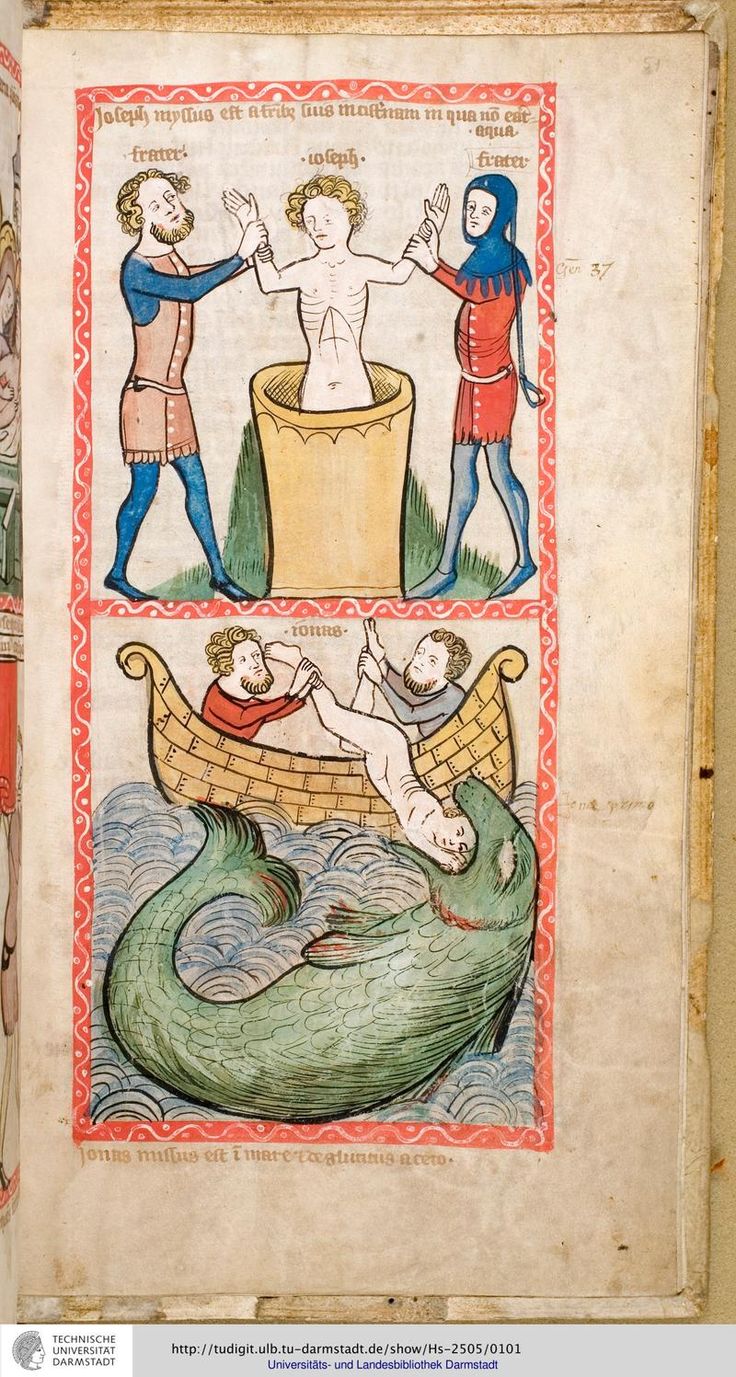 51
Joseph myssus est a frībȝ suis in cist'nam in qua nō erat
aqua
frater
ioseph
frater
Gen 37
ionas
Jonas missus est ī mare t deglutitus a ceto.
TECHNISCHE
UNIVERSITÄT
DARMSTADT
http://tudigit.ulb.tu-darmstadt.de/show/Hs-2505/0101
Universitäts- und Landesbibliothek Darmstadt